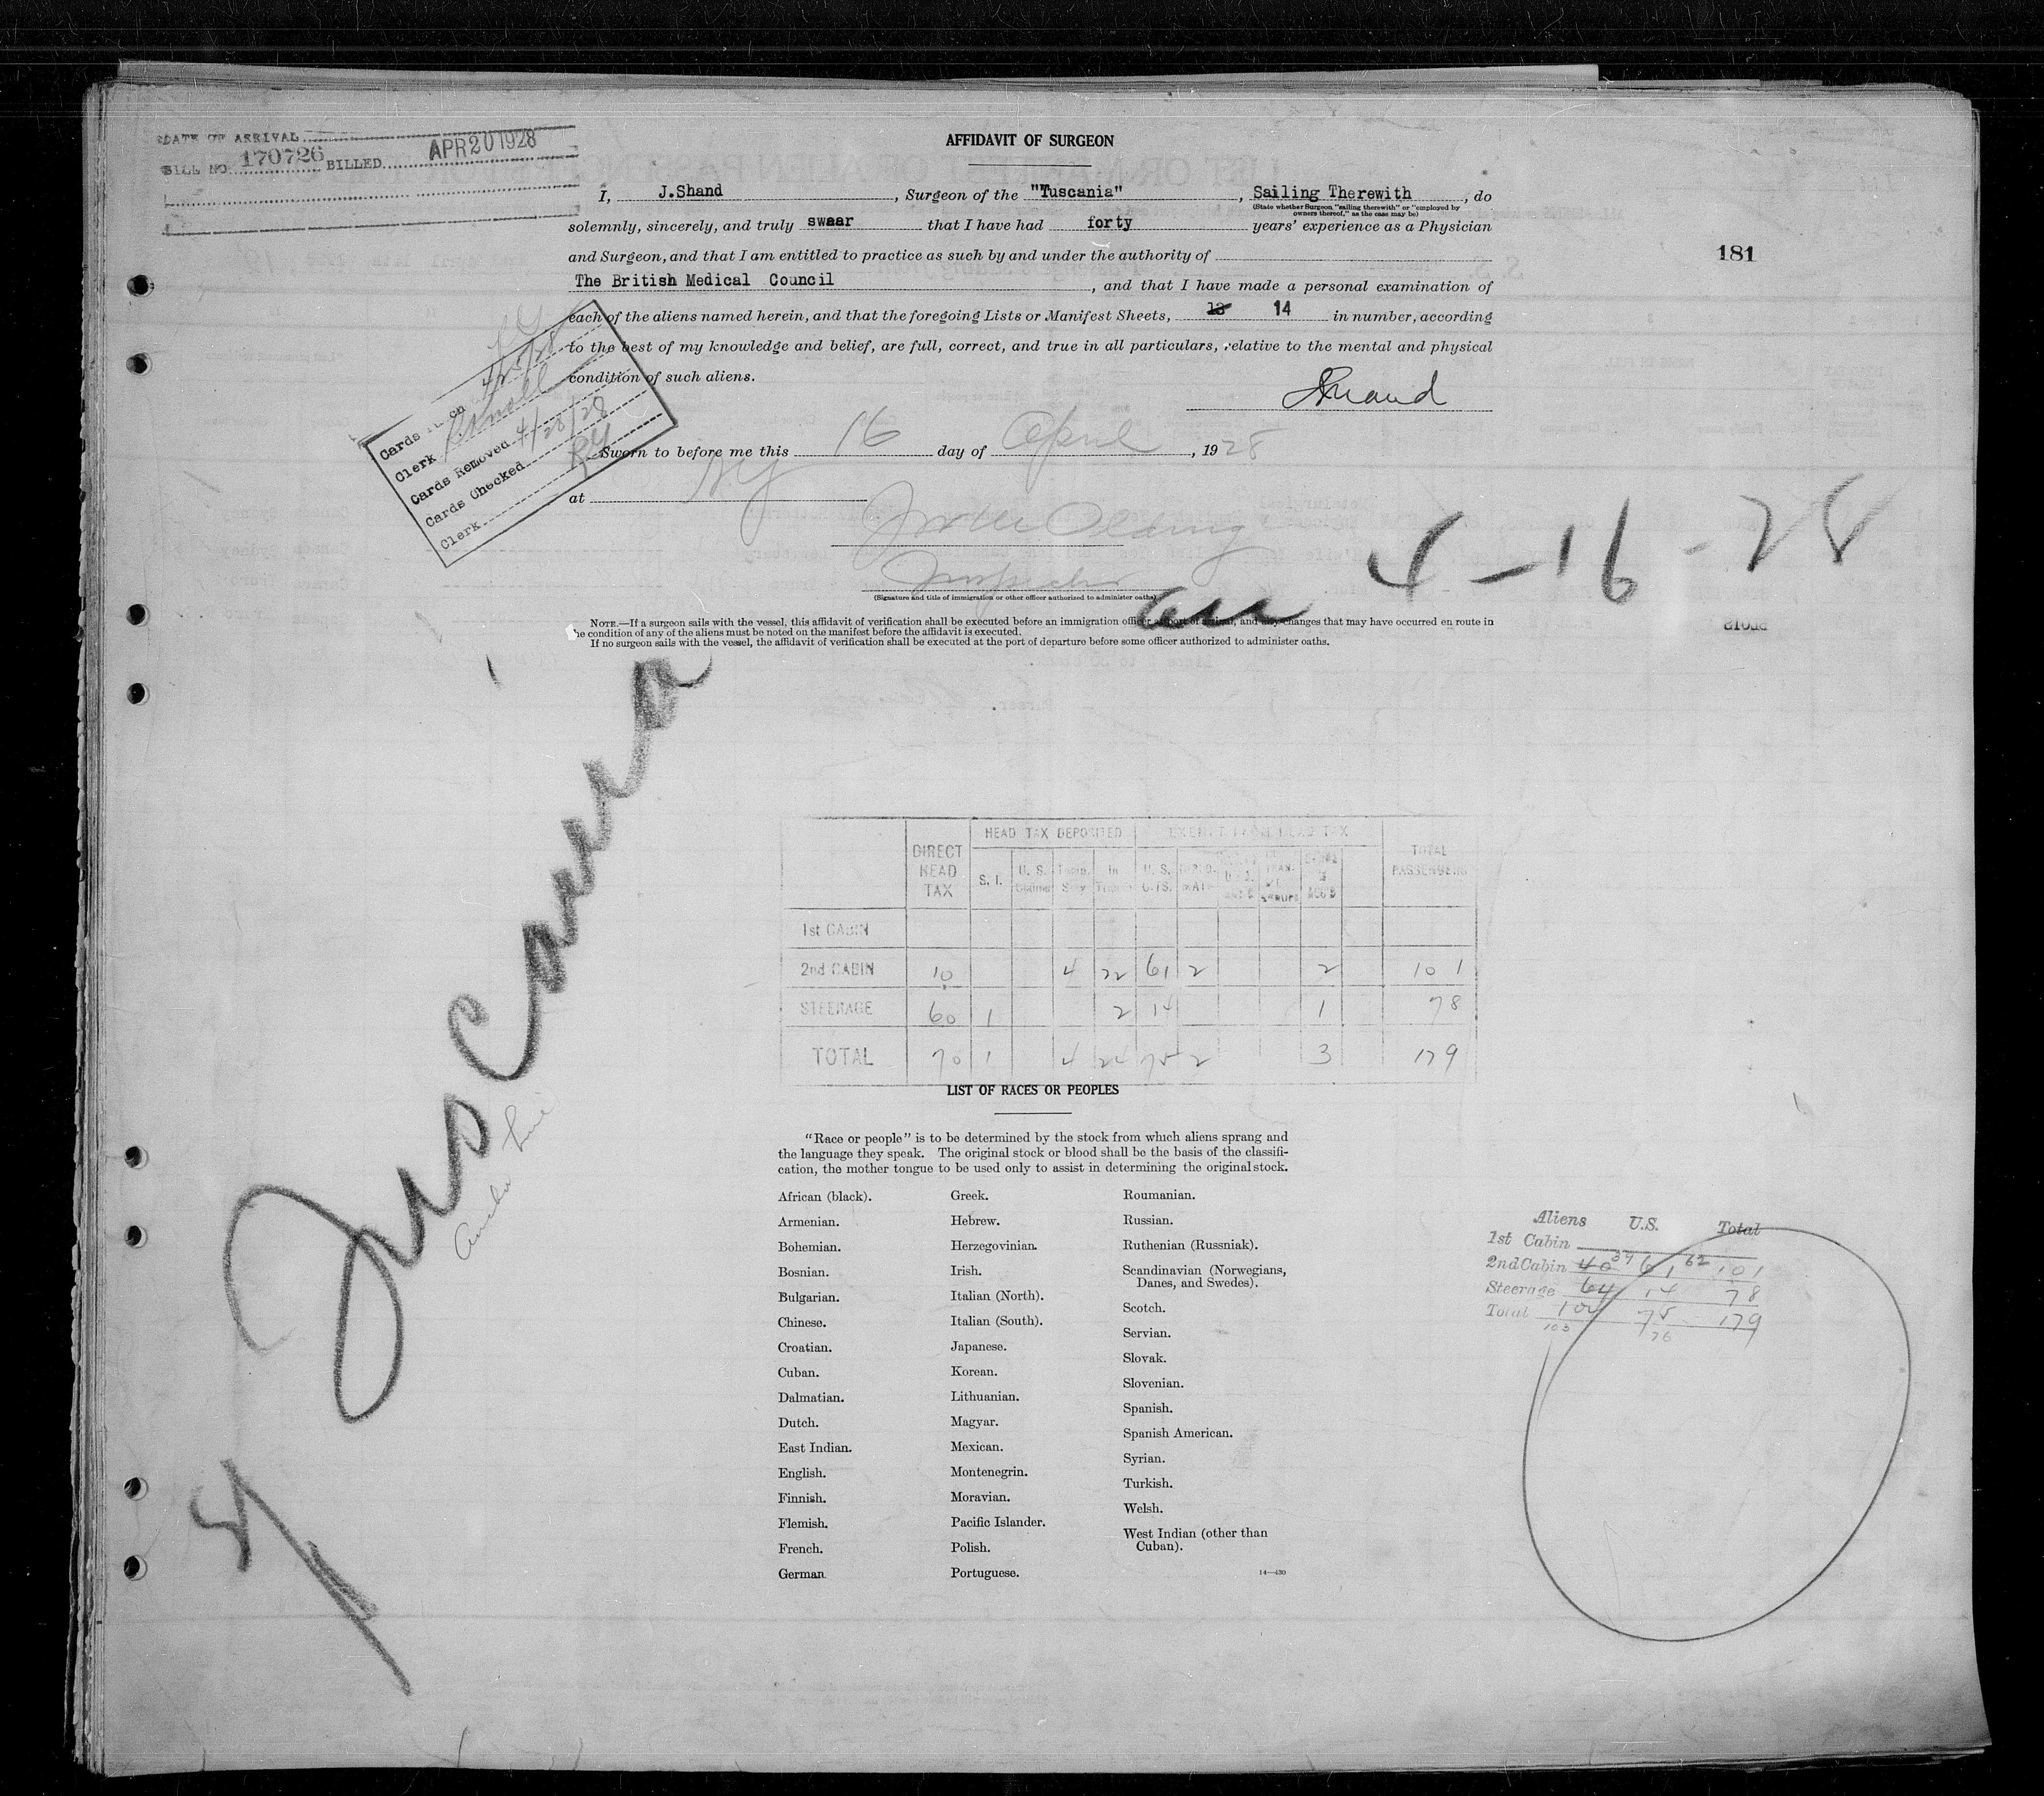 DATE OF ARRIVAL
BILL NO. 170726 BILLED APR 20 1928
AFFIDAVIT OF SURGEON
I, J.Shand, Surgeon of the "Tuscania", Sailing Therewith, do
(State whether Surgeon "sailing therewith" or "employed by
owners thereof," as the case may be)
solemnly, sincerely, and truly swaar that I have had forty years' experience as a Physician
and Surgeon, and that I am entitled to practice as such by and under the authority of
The British Medical Council, and that I have made a personal examination of
each of the aliens named herein, and that the foregoing Lists or Manifest Sheets, 13 14 in number, according
to the best of my knowledge and belief, are full, correct, and true in all particulars, relative to the mental and physical
condition of such aliens.
JShand
181
Cards ch 4/25/28
Clerk
Cards Removed 4/28/28
Cards Checked RY
Clerk
Sworn to before me this 16 day of April, 1928
at NY
Inspector
(Signature and title of immigration or other officer authorized to administer oaths)
4-16-28
NOTE.—If a surgeon sails with the vessel, this affidavit of verification shall be executed before an immigration officer at port of arrival, and any changes that may have occurred en route in
the condition of any of the aliens must be noted on the manifest before the affidavit is executed.
If no surgeon sails with the vessel, the affidavit of verification shall be executed at the port of departure before some officer authorized to administer oaths.
Tuscania
Anchor Line
HEAD TAX DEPOSITED EXEMPT FROM HEAD TAX
DIRECT HEAD TAX S. I. U. S. Temp. Stay In Trans U. S. CITS. DIPLOMATS TOTAL PASSENGERS
1st CABIN
2nd CABIN 10 4 22 61 2 2 101
STEERAGE 60 1 2 14 1 78
TOTAL 70 1 4 24 75 2 3 179
LIST OF RACES OR PEOPLES
"Race or people" is to be determined by the stock from which aliens sprang and
the language they speak. The original stock or blood shall be the basis of the classifi-
cation, the mother tongue to be used only to assist in determining the original stock.
African (black).
Armenian.
Bohemian.
Bosnian.
Bulgarian.
Chinese.
Croatian.
Cuban.
Dalmatian.
Dutch.
East Indian.
English.
Finnish.
Flemish.
French.
German
Greek.
Hebrew.
Herzegovinian.
Irish.
Italian (North).
Italian (South).
Japanese.
Korean.
Lithuanian.
Magyar.
Mexican.
Montenegrin.
Moravian.
Pacific Islander.
Polish.
Portuguese.
Roumanian.
Russian.
Ruthenian (Russniak).
Scandinavian (Norwegians,
Danes, and Swedes).
Scotch.
Servian.
Slovak.
Slovenian.
Spanish.
Spanish American.
Syrian.
Turkish.
Welsh.
West Indian (other than
Cuban).
14—430
Aliens U.S. Total
1st Cabin
2nd Cabin 40 39 61 62 101
Steerage 64 14 78
Total 104 75 179
103 76